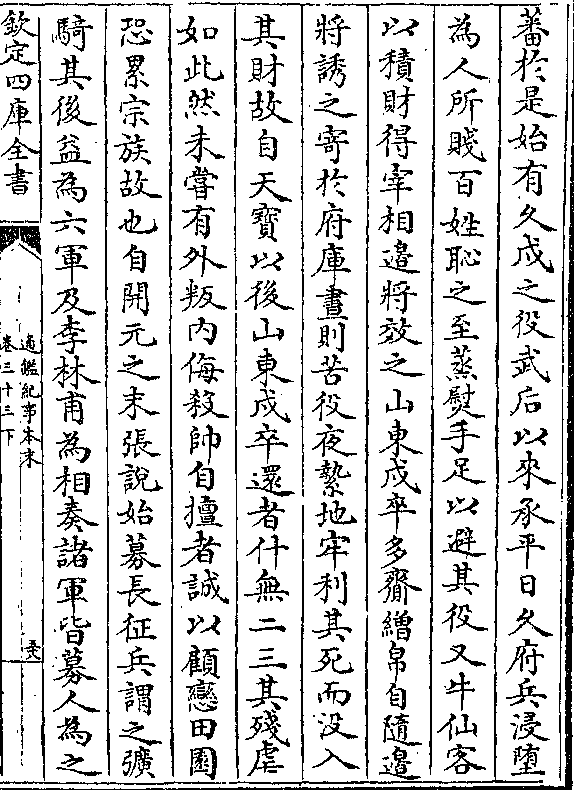 蕃於是始有久戍之役武后以來承平日久府兵浸墮
為人所賤百姓恥之至蒸熨手足以避其役又牛仙客
以積財得宰相邊將效之山東戍卒多齎繒帛自隨邊
將誘之寄於府庫晝則苦役夜縶地牢利其死而没入
其財故自天寳以後山東戍卒還者什無二三其殘虐
如此然未嘗有外叛内侮殺帥自擅者誠以顧戀田園
恐累宗族故也自開元之末張說始募長征兵謂之彍
騎其後益為六軍及李林甫為相奏諸軍皆募人為之
欽定四庫全書
通鑑紀事本末
卷三十三下